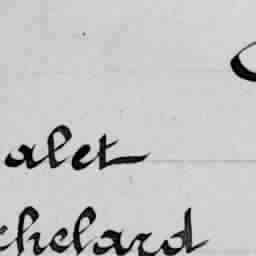 alet
chelard